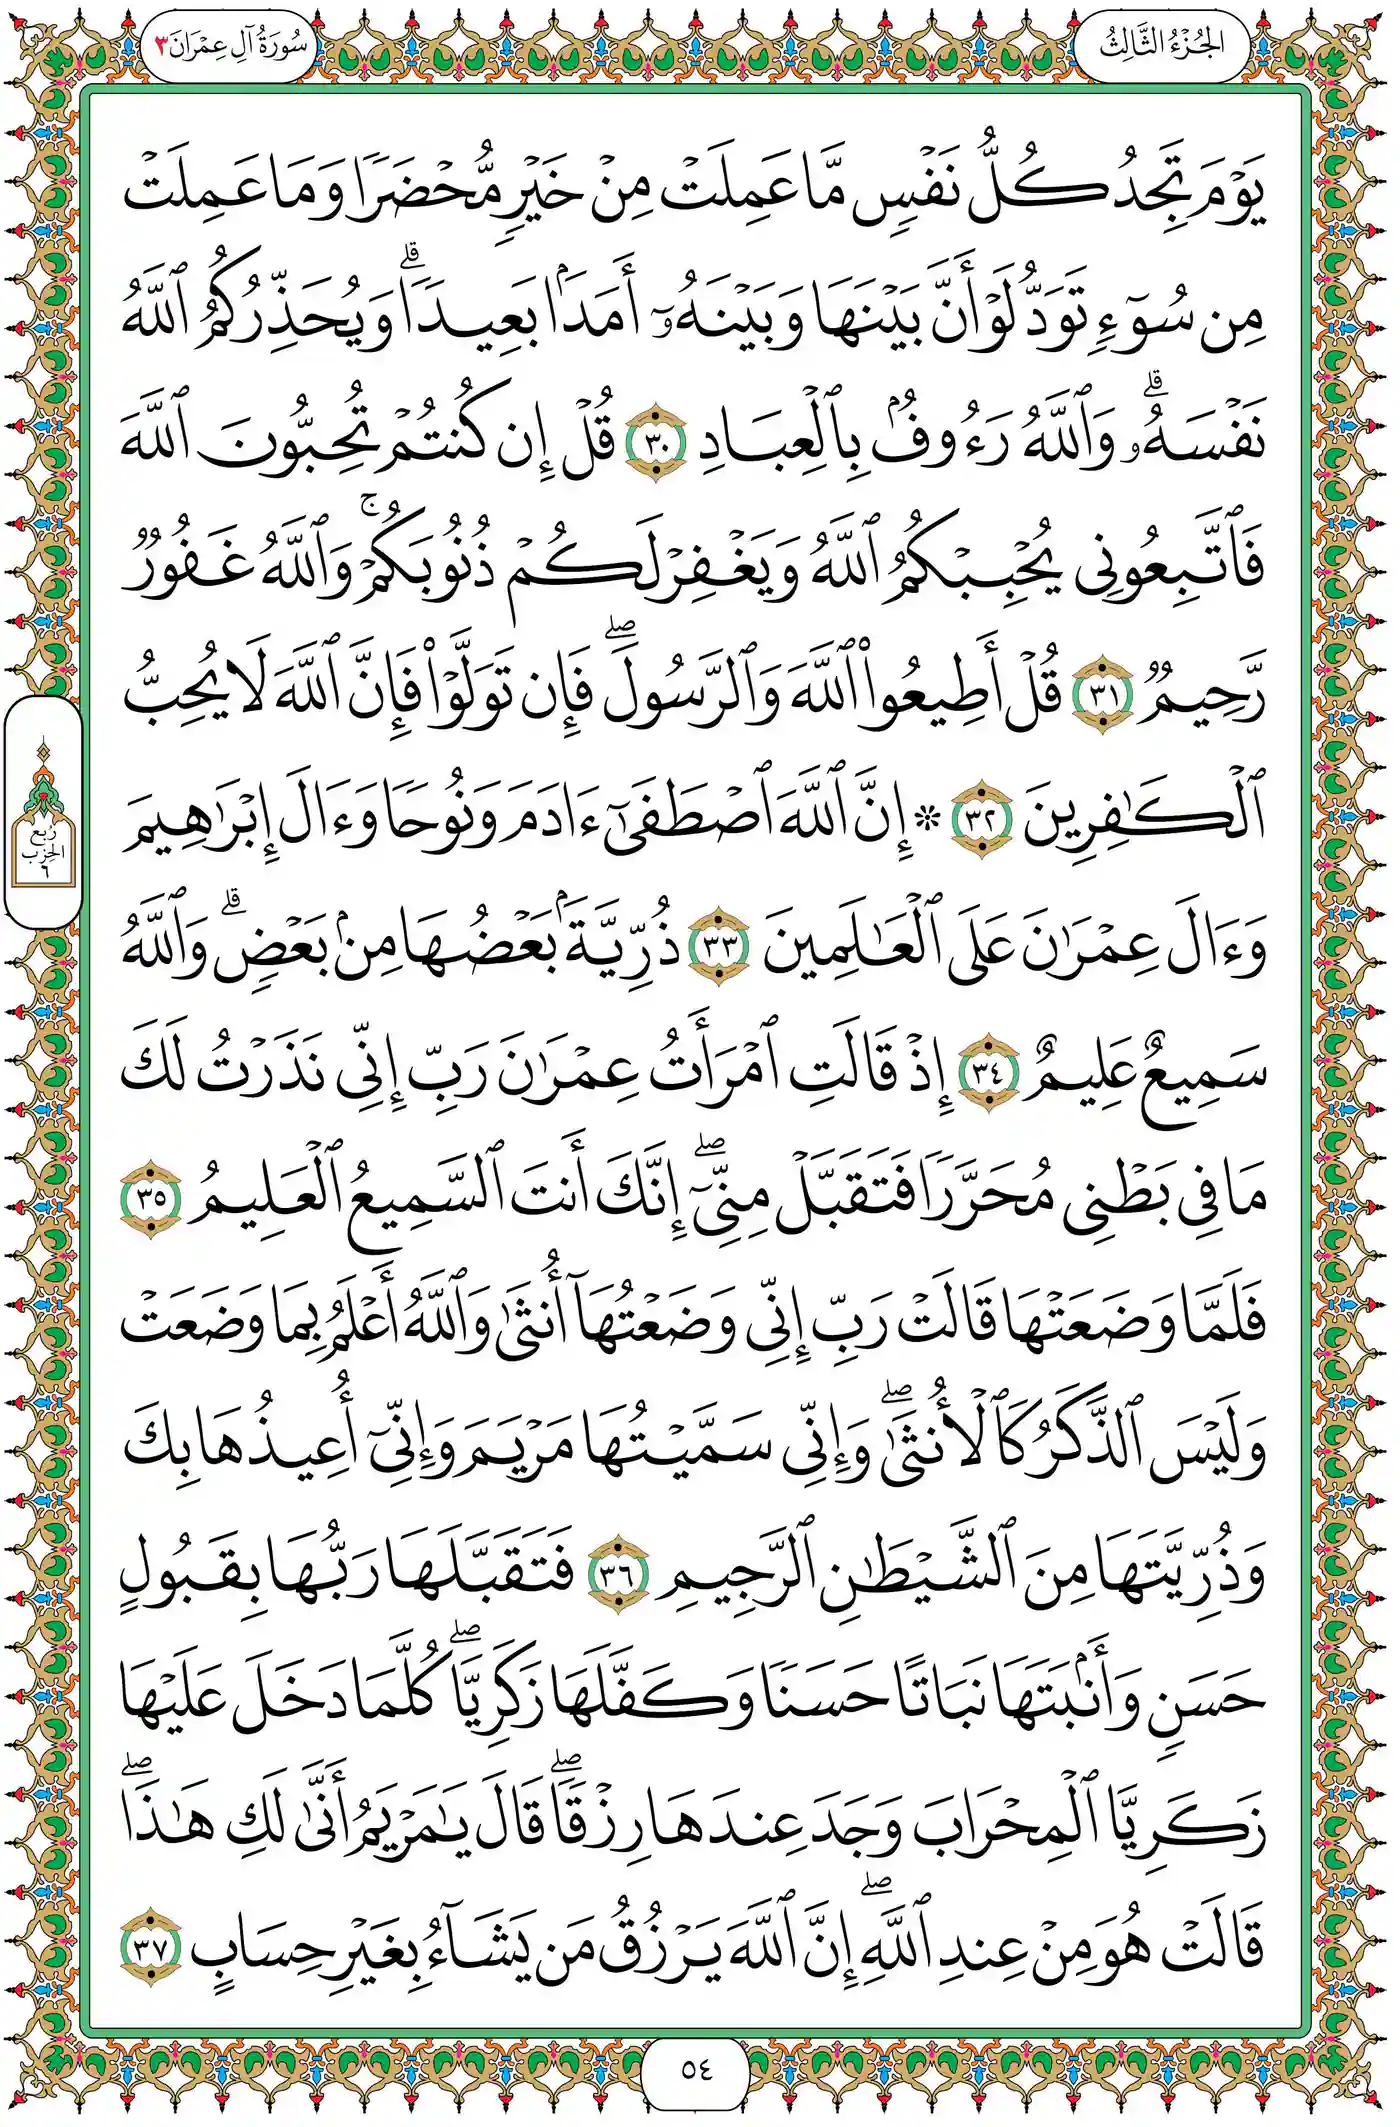 الجُزْءُ الثَّالِثُ
سُورَةُ آلِ عِمْرَانَ ٣
يَوْمَ تَجِدُ كُلُّ نَفْسٖ مَّا عَمِلَتْ مِنْ خَيْرٖ مُّحْضَرٗا وَمَا عَمِلَتْ
مِن سُوٓءٖ تَوَدُّ لَوْ أَنَّ بَيْنَهَا وَبَيْنَهُۥٓ أَمَدَۢا بَعِيدٗاۗ وَيُحَذِّرُكُمُ ٱللَّهُ
نَفْسَهُۥۗ وَٱللَّهُ رَءُوفُۢ بِٱلْعِبَادِ ٣٠ قُلْ إِن كُنتُمْ تُحِبُّونَ ٱللَّهَ
فَٱتَّبِعُونِي يُحْبِبْكُمُ ٱللَّهُ وَيَغْفِرْ لَكُمْ ذُنُوبَكُمْۚ وَٱللَّهُ غَفُورٞ
رَّحِيمٞ ٣١ قُلْ أَطِيعُوا۟ ٱللَّهَ وَٱلرَّسُولَۖ فَإِن تَوَلَّوْا۟ فَإِنَّ ٱللَّهَ لَا يُحِبُّ
ٱلْكَٰفِرِينَ ٣٢ ۞ إِنَّ ٱللَّهَ ٱصْطَفَىٰٓ ءَادَمَ وَنُوحٗا وَءَالَ إِبْرَٰهِيمَ
وَءَالَ عِمْرَٰنَ عَلَى ٱلْعَٰلَمِينَ ٣٣ ذُرِّيَّةَۢ بَعْضُهَا مِنۢ بَعْضٖۗ وَٱللَّهُ
سَمِيعٌ عَلِيمٌ ٣٤ إِذْ قَالَتِ ٱمْرَأَتُ عِمْرَٰنَ رَبِّ إِنِّي نَذَرْتُ لَكَ
مَا فِي بَطْنِي مُحَرَّرٗا فَتَقَبَّلْ مِنِّيٓۖ إِنَّكَ أَنتَ ٱلسَّمِيعُ ٱلْعَلِيمُ ٣٥
فَلَمَّا وَضَعَتْهَا قَالَتْ رَبِّ إِنِّي وَضَعْتُهَآ أُنثَىٰ وَٱللَّهُ أَعْلَمُ بِمَا وَضَعَتْ
وَلَيْسَ ٱلذَّكَرُ كَٱلْأُنثَىٰۖ وَإِنِّي سَمَّيْتُهَا مَرْيَمَ وَإِنِّيٓ أُعِيذُهَا بِكَ
وَذُرِّيَّتَهَا مِنَ ٱلشَّيْطَٰنِ ٱلرَّجِيمِ ٣٦ فَتَقَبَّلَهَا رَبُّهَا بِقَبُولٍ
حَسَنٖ وَأَنۢبَتَهَا نَبَاتًا حَسَنٗا وَكَفَّلَهَا زَكَرِيَّاۖ كُلَّمَا دَخَلَ عَلَيْهَا
زَكَرِيَّا ٱلْمِحْرَابَ وَجَدَ عِندَهَا رِزْقٗاۖ قَالَ يَٰمَرْيَمُ أَنَّىٰ لَكِ هَٰذَاۖ
قَالَتْ هُوَ مِنْ عِندِ ٱللَّهِۖ إِنَّ ٱللَّهَ يَرْزُقُ مَن يَشَآءُ بِغَيْرِ حِسَابٍ ٣٧
رُبع
الحِزْب
٦
٥٤